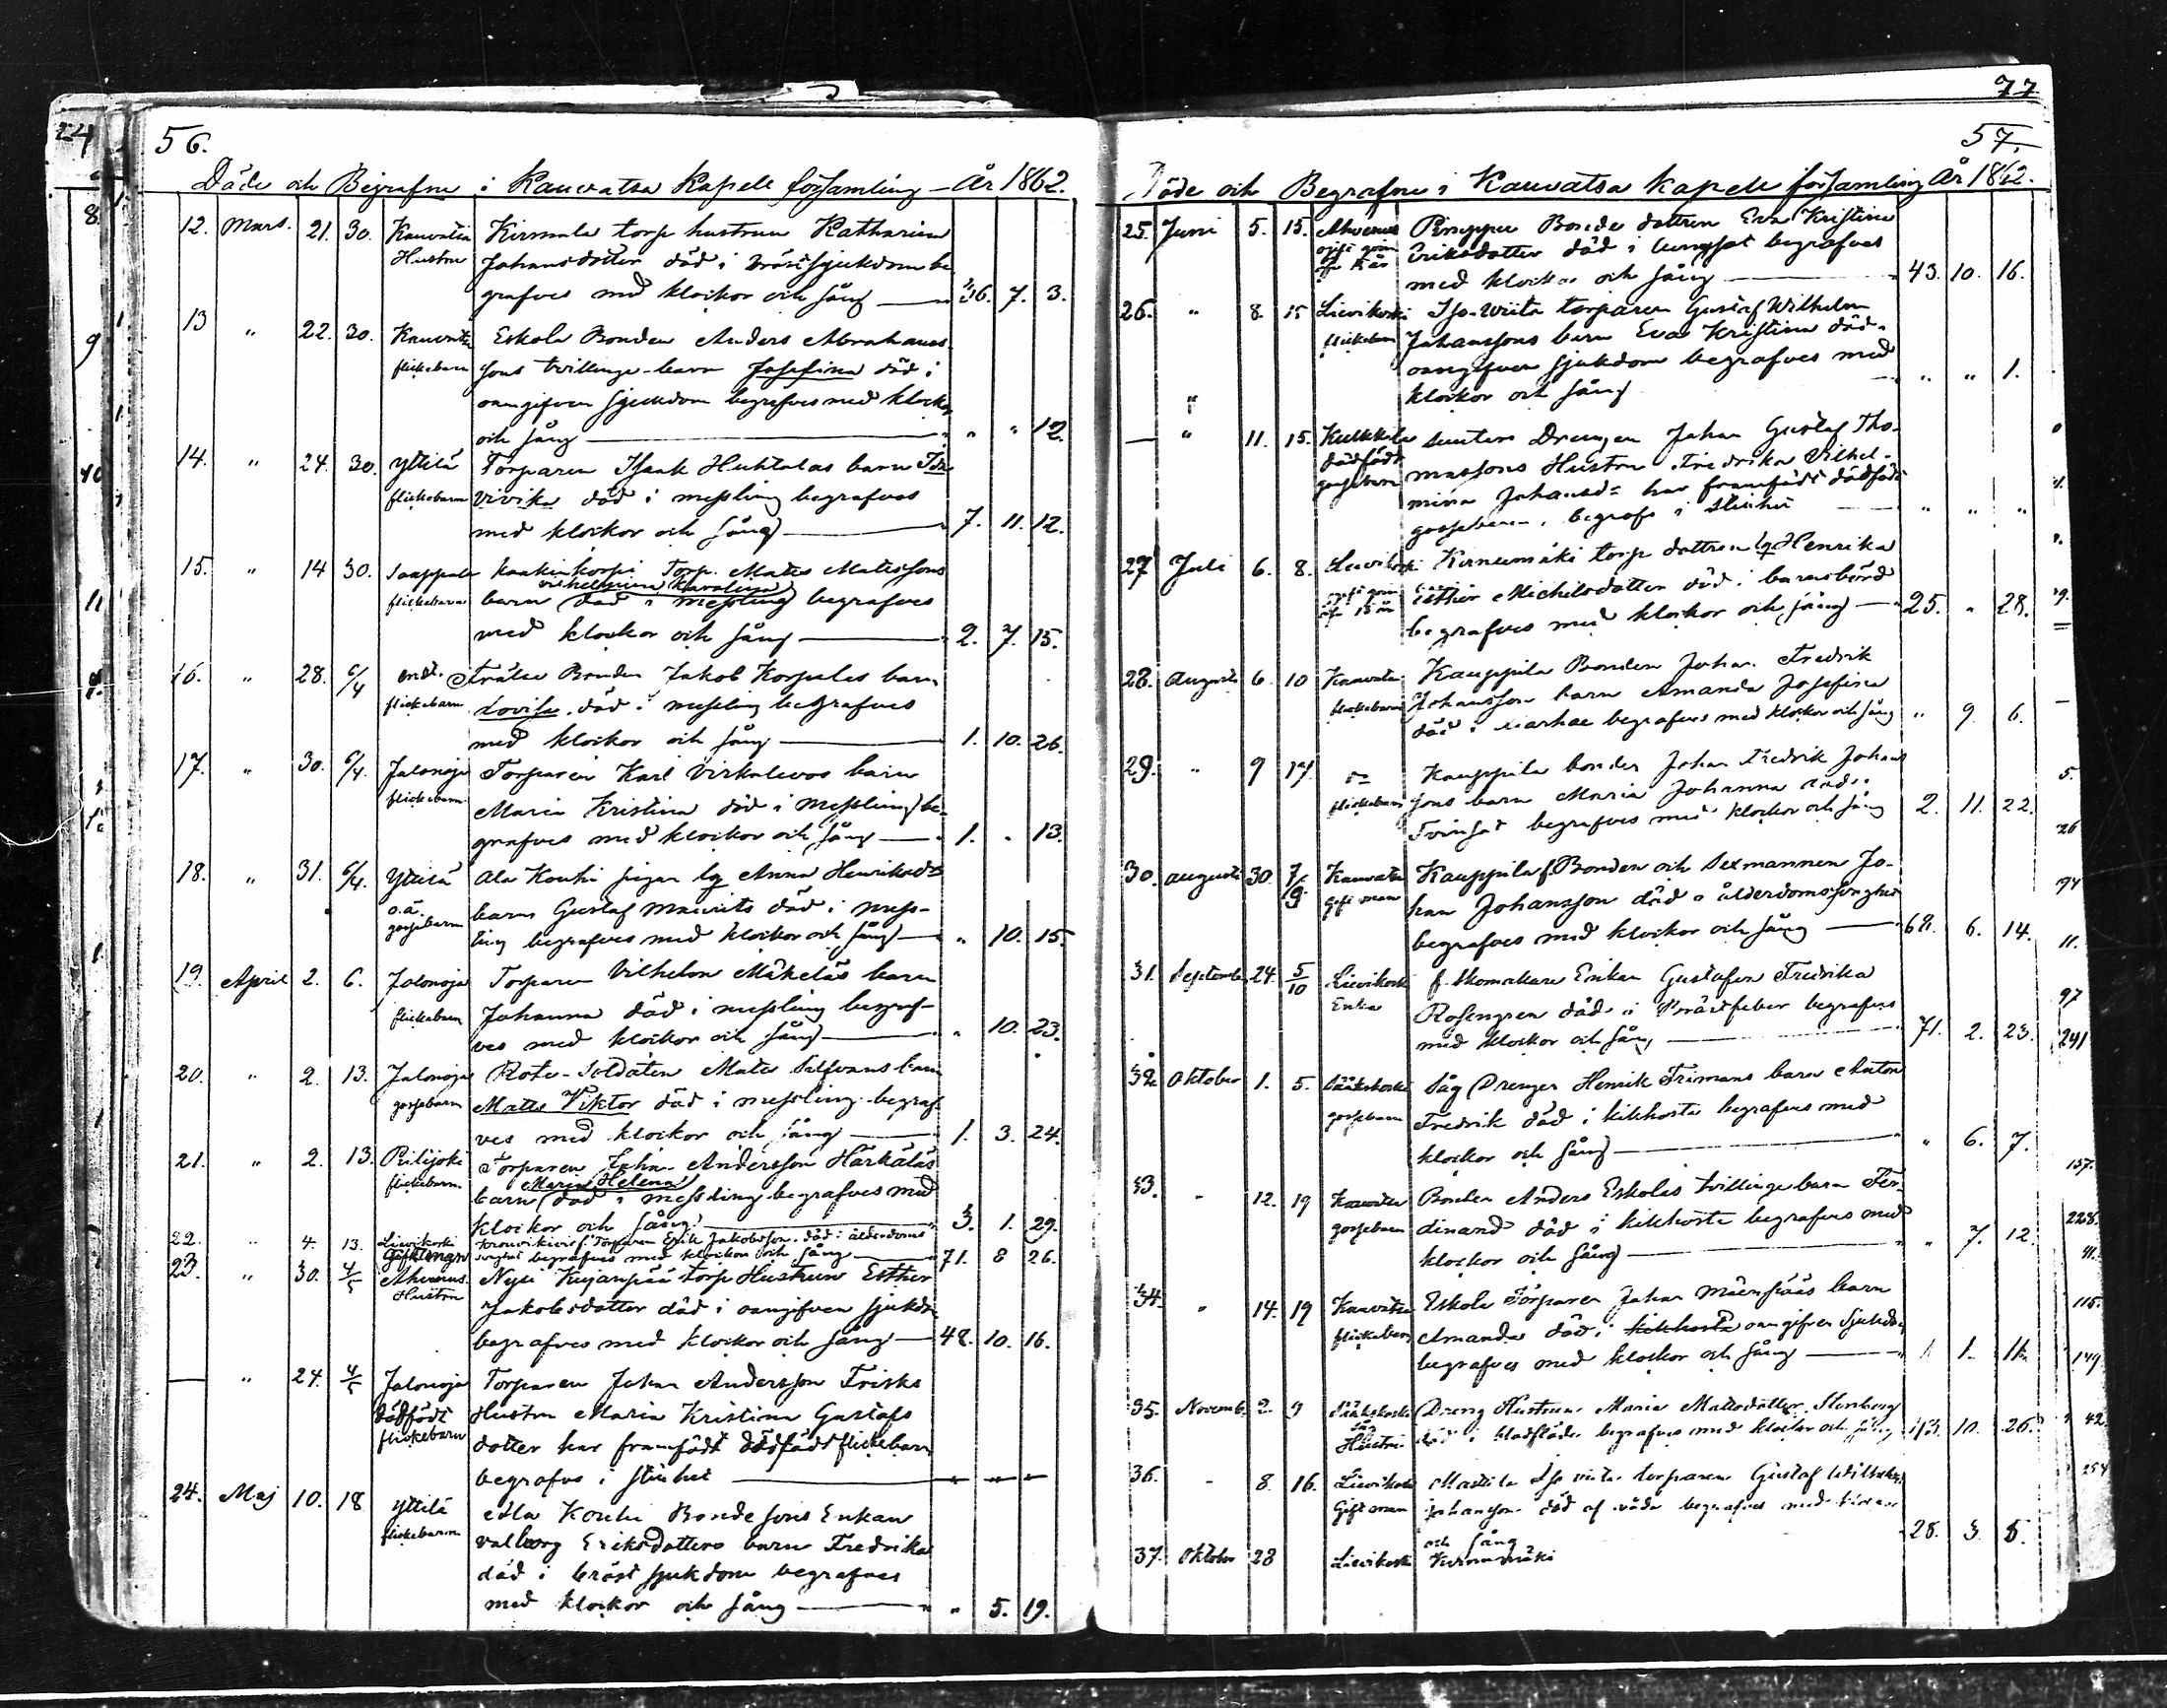 56.
Döde och Begrafne i Kauvatsa Kapell församling År 1862.
12. Mars. 21. 30. Kauvatsa Kirmala torp hustrun Katharina
Hustru Johansdotter död i bröstsjukdom be
grafves med klockor och sång 36. 7. 3.
13 " 22. 30. Kauvatsa Eskola Bonden Anders Abrahams
flickebarn sons tvillinge-barn Josefina död i
oangifven sjukdom begrafves med klockor
och sång " " 12.
14. " 24. 30. Yttilä Torparen Isaak Huhtalas barn Ida
flickebarn Vivika död i messling begrafves
med klockor och sång 7. 11. 12.
15. " 14 30. Torp. Matts Matssons
vilhelmina Karolina
flickebarn barn död i messling begrafves
med klockor och sång 2. 7. 15.
16. " 28. 6/4 Bonden Jakob Korpelas barn
flickebarn Lovisa död i messling begrafves
med klockor och sång 1. 10. 26.
17. " 30. 6/4. Jalonoja Torparen Karl Virkalevos barn
flickebarn Maria Kristina död i messling be
grafves med klockor och sång 1. " 13.
18. " 31. 6/4. Yttilä Ala Kouhi pigan lg Anna Henriksdr
o.ä. gossebarn barn Gustaf Maurits död i mess-
ling begrafves med klockor och sång " 10. 15.
19. April 2. 6. Jalonoja Torparen Vilhelm Mäkeläs barn
flickebarn Johanna död i messling begraf-
ves med klockor och sång " 10. 23.
20. " 2. 13. Jalonoja Rote-Soldaten Matts barn
gossebarn Matts Viktor död i messling begraf
ves med klockor och sång 1. 3. 24.
21. " 2. 13. Piilijoki Torparen Johan Andersson Härkäläs
Maria Helena
flickebarn barn död i messling begrafves med
klockor och sång 3. 1. 29.
22. " 4. 13. Lievikoski Torparen Erik Jakobsson död i ålderdoms
Gift man begrafves med klockor och sång 71. 8 26.
23. " 30. 4/5 Ahvenus Nyu Kujanpää torp Hustrun Esther
Hustru Jakobsdotter död i oangifven sjukdo
begrafves med klockor och sång 48. 10. 16.
— " 24. 4/5 Jalonoja Torparen Johan Andersson Frisks
dödfödt Hustru Maria Kristina Gustafs
flickebarn dotter har framfödt dödfödt flickebarn
begrafves i stillhet
24. Maj 10. 18 Yttilä Ala Kouhi Bondesons Enkan
flickebarn valborg Eriksdotters barn Fredrika
död i bröst sjukdom begrafves
med klockor och sång " 5. 19.
77
57.
Döde och Begrafne i Kauvatsa Kapell församling År 1862.
25. Juni 5. 15. Ahvenus Bonde dottren Eva Kristina
Eriksdotter död i lungsot begrafves
med klockor och sång 43. 10. 16.
26. " 8. 15 Lievikoski Iso-wiita torparen Gustaf Wilhelm
flickebarn Johanssons barn Eva Kristina död
oangifven sjukdom begrafves med
klockor och sång " " 1.
— " 11. 15. Kulkkila Drengen Johan Gustaf Tho-
dödfödt massons Hustru Fredrika Vilhel-
gossebarn mina Johansd= har framfödt dödfödt
gossebarn, begrafs i stillhet " " "
27 Juli 6. 8. Lievikoski torp dottren lg Henrika
Esther Michelsdotter död i barnsbörd
begrafves med klockor och sång 25. " 28.
28. Augusti 6 10 Kauvatsa Kauppila Bonden Johan Fredrik
flickebarn Johansson barn Amanda Josefina
död i begrafves med klockor och sång " 9. 6.
29. " 9 17 Kauppila bonden Johan Fredrik Johans
flickebarn sons barn Maria Johanna död i
Tvinsot begrafves med klockor och sång 2. 11. 22.
30. Augusti 30 7/9 Kauvatsa Kauppila f. Bonden och Sexmannen Jo-
Gift man han Johansson död i ålderdomssvaghet
begrafves med klockor och sång 68. 6. 14.
31. September 24. 5/10 Lievikoski f. Skomakare Enkan Gustafva Fredrika
Enka Rosengren död i begrafves
med klockor och sång 71. 2. 23.
32. Oktober 1. 5. Sääkskoski Såg Drengen Henrik Frimans barn Anton
gossebarn Fredrik död i kikhosta begrafves med
klockor och sång " 6. 7.
33. " 12. 19 Kauvatsa Bonden Anders Eskolas tvillinge barn Fer-
gossebarn dinand död i kikhosta begrafves med
klockor och sång " 7. 12.
34. " 14. 19 Kauvatsa Eskola Torparen Johan Mäenpääs barn
flickebarn Amanda död i kikhosta oangifven Sjukdom
begrafves med klockor och sång 1. 11.
35. Novemb. 2. 9 Sääkskoski Dreng Hustrun Maria Mattsdotter Stenberg
såg Hustru död i begrafves med klockor och sång 43. 10. 26.
36. " 8. 16. Lievikoski Mattila Iso wiita torparen Gustaf Wilhelm
Gift man Johansson död af våda begrafves med klockor
och sång 28. 3. 5.
37. Oktober 28 Lievikoski